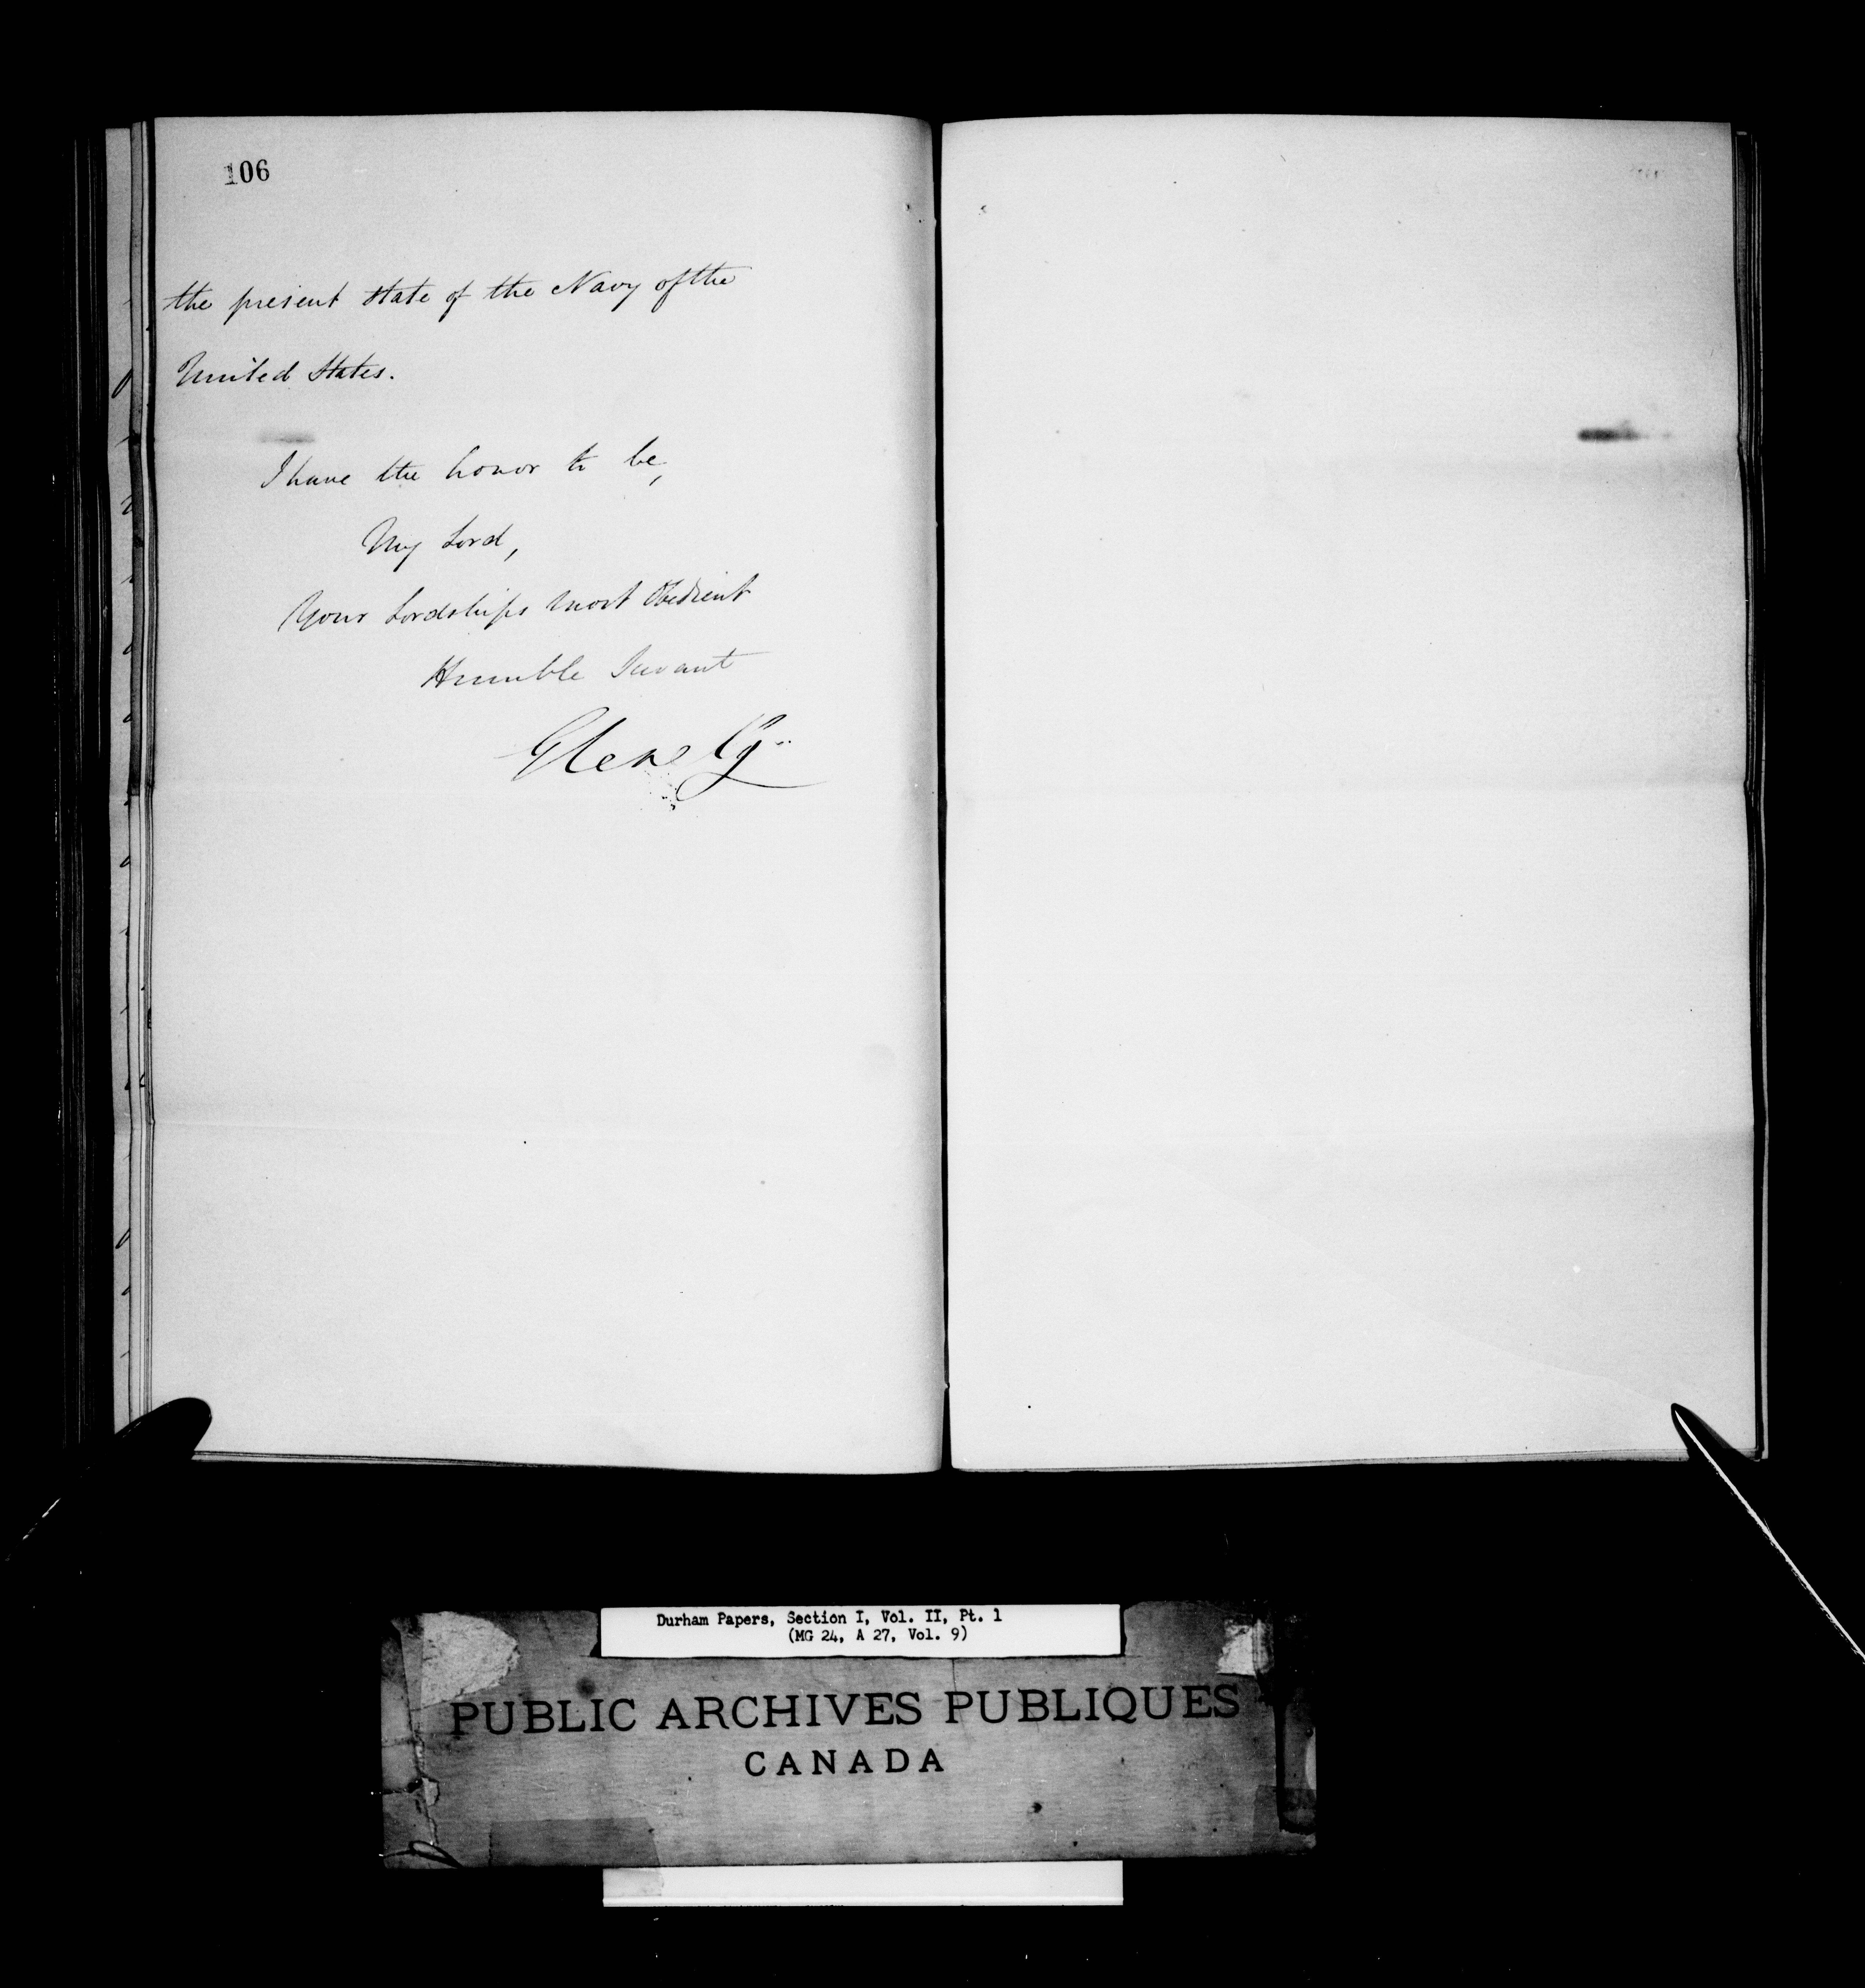 106
the present state of the Navy of the
United States.
I have the honor to be,
My Lord,
Your Lordships most Obedient
Humble Servant
Glenelg
Durham Papers, Section I, Vol. II, Pt. 1
(MG 24, A 27, Vol. 9)
PUBLIC ARCHIVES PUBLIQUES
CANADA